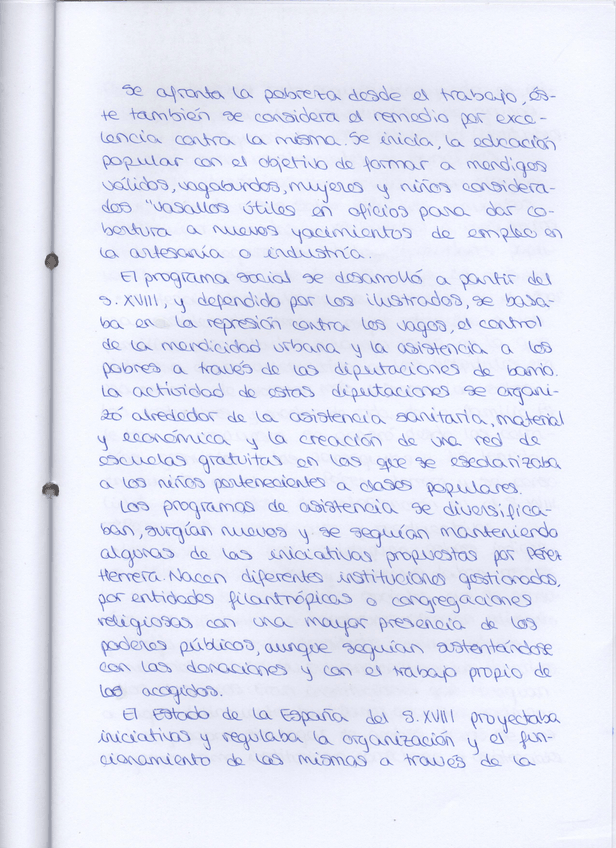 Se afronta la pobreza desde el trabajo, és-
te también se considera el remedio por exce-
lencia contra la misma. Se inicia, la educación
popular con el objetivo de formar a mendigos
válidos, vagabundos, mujeres y niños considera-
dos "vasallos útiles en oficios para dar co-
bertura a nuevos yacimientos de empleo en
la artesanía o industria.
El programa social se desarrolló a partir del
S. XVIII, y defendido por los ilustrados, se basa-
ba en la represión contra los vagos, el control
de la mendicidad urbana y la asistencia a los
pobres a través de las diputaciones de barrio.
La actividad de estas diputaciones se organi-
zó alrededor de la asistencia sanitaria, material
y económica y la creación de una red de
escuelas gratuitas en las que se escolarizaba
a los niños pertenecientes a clases populares.
Los programas de asistencia se diversifica-
ban, surgían nuevos y se seguían manteniendo
algunas de las iniciativas propuestas por Pérez
Herrera. Nacen diferentes instituciones gestionadas,
por entidades filantrópicas o congregaciones
religiosas con una mayor presencia de los
poderes públicos, aunque seguían sustentándose
con las donaciones y con el trabajo propio de
los acogidos.
El Estado de la España del S. XVIII proyectaba
iniciativas y regulaba la organización y el fun-
cionamiento de las mismas a través de la